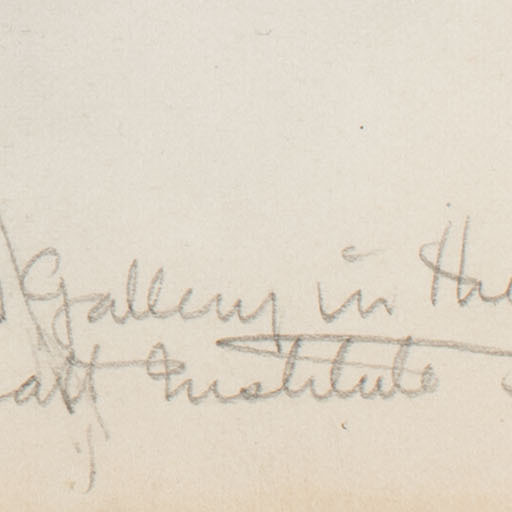 Gallery in the
art Institute